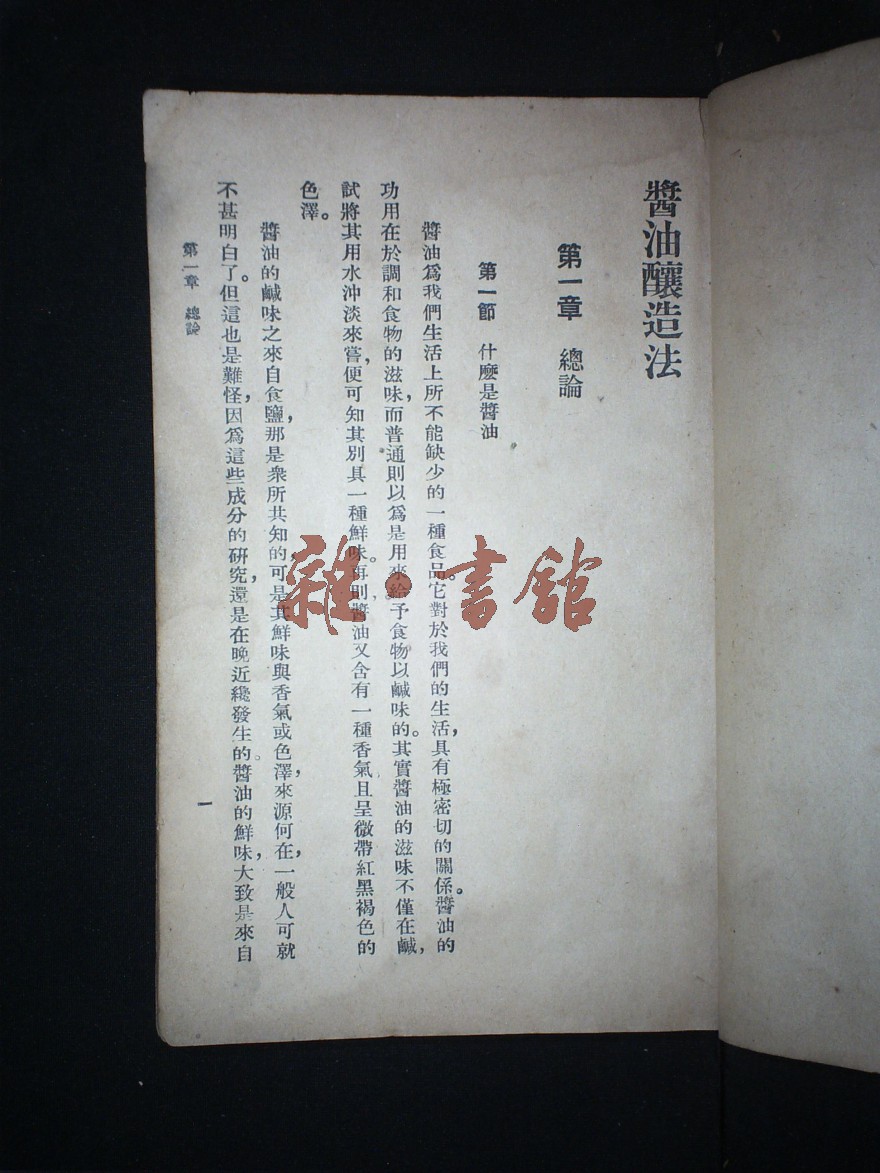 醬油釀造法
第一章　總論
第一節　什麽是醬油
醬油爲我們生活上所不能缺少的一種食品。它對於我們的生活，具有極密切的關係。醬油的
功用在於調和食物的滋味，而普通則以爲是用來給予食物以鹹味的。其實醬油的滋味不僅在鹹，
試將其用水沖淡來嘗，便可知其別具一種鮮味。再則醬油又含有一種香氣且呈微帶紅黑褐色的
色澤。
醬油的鹹味之來自食鹽，那是衆所共知的，可是其鮮味與香氣或色澤，來源何在，一般人可就
不甚明白了。但這也是難怪，因爲這些成分的研究，還是在晚近纔發生的。醬油的鮮味，大致是來自
第一章　總論
一
雜·書館